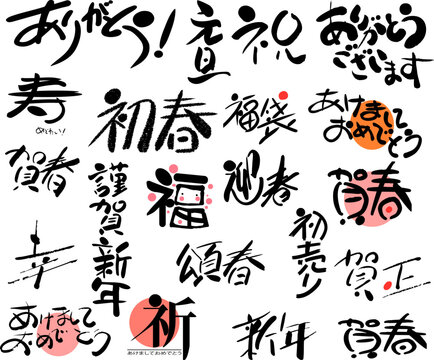 ありがとう!
元旦
祝
ありがとう
ございます
寿
めでたい!
初春
福袋
あけまして
おめでとう
賀春
謹賀新年
福
迎春
賀春
幸
頌春
初売り
賀正
あけまして
おめでとう
祈
あけましておめでとう
新年
賀春